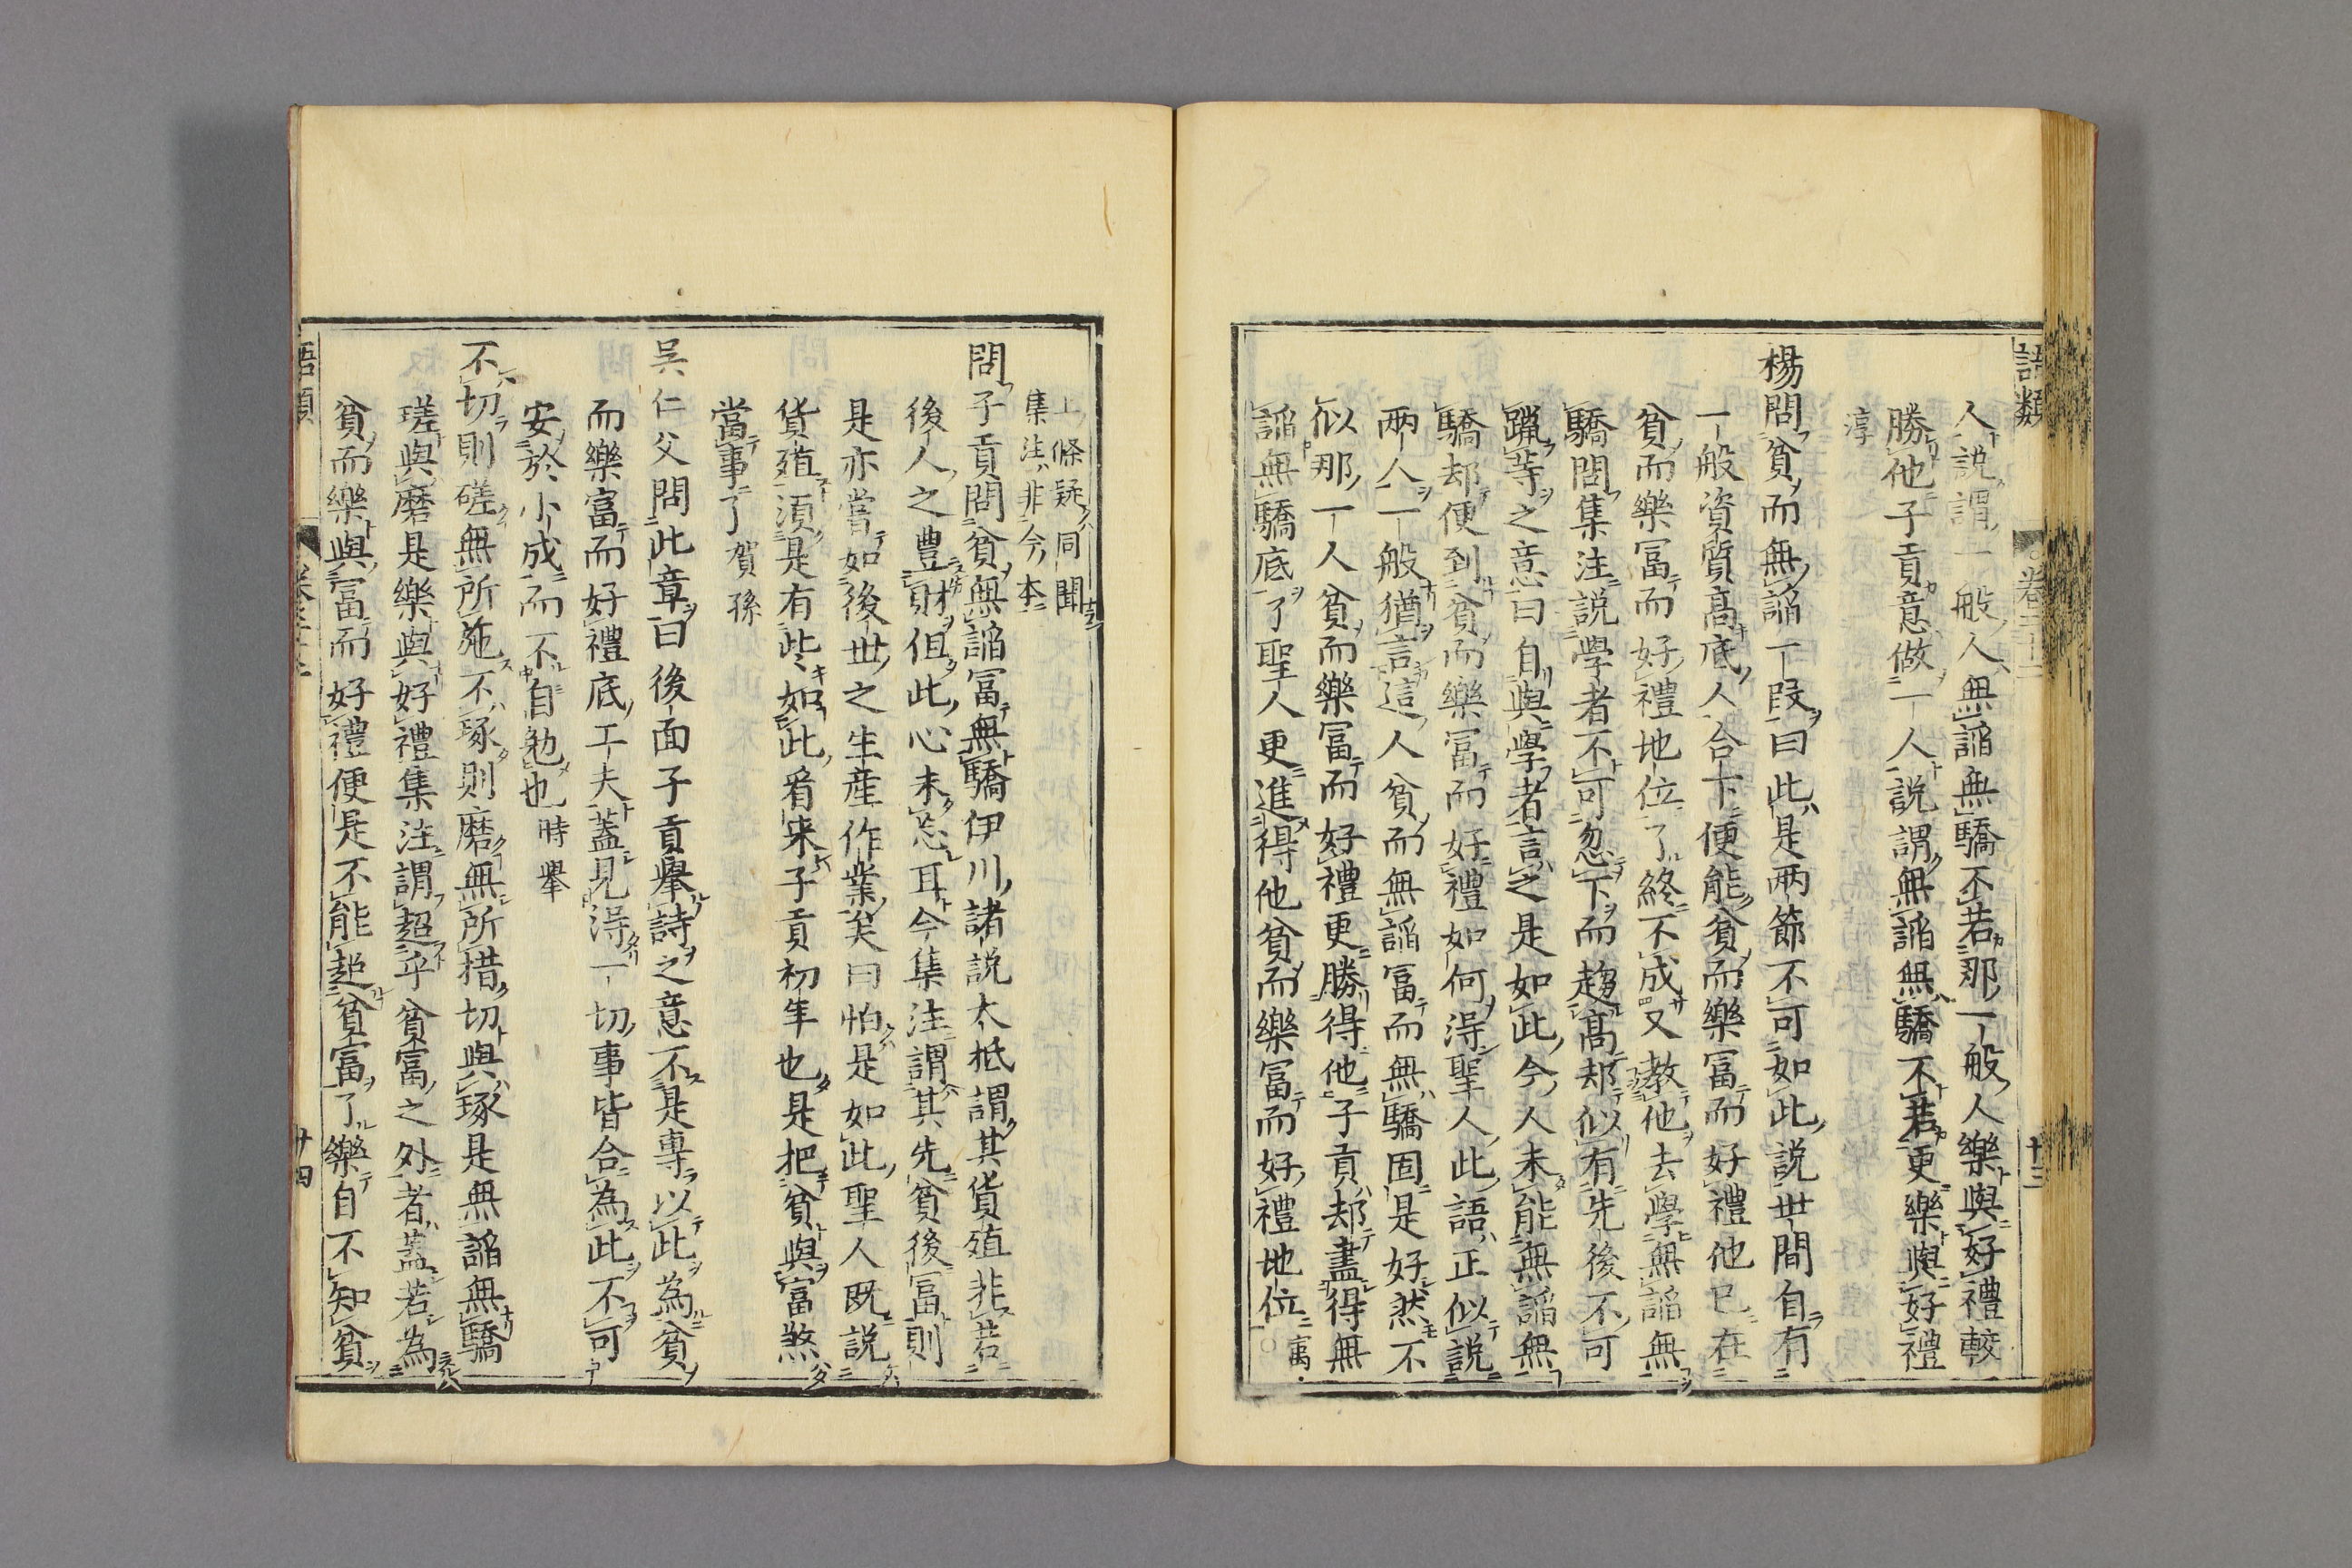 語類
卷二十二
十三
人說謂一般人無諂無驕不若那一般人樂與好禮較
勝他子貢意做一人說謂無諂無驕不若更樂與好禮
淳
楊問貧而無諂一段曰此是兩節不可如此說世間自有
一般資質高底人合下便能貧而樂富而好禮他已在
貧而樂富而好禮地位了終不成又教他去學無諂無
驕問集注說學者不可忽下而趨高却似有先後不可
躐等之意曰自與學者言之是如此今人未能無諂無
驕却便到貧而樂富而好禮如何得聖人此語正似說
兩人一般猶言這人貧而無諂富而無驕固是好然不
似那一人貧而樂富而好禮更勝得他子貢却盡得無
諂無驕底了聖人更進得他貧而樂富而好禮地位 㝢
上條疑同聞
集注非今本
問子貢問貧無諂富無驕伊川諸說大抵謂其貨殖非若
後人之豊財但此心未忘耳今集注謂其先貧後富則
是亦嘗如後世之生產作業矣曰怕是如此聖人既說
貨殖須是有些如此看來子貢初年也是把貧與富煞
當事了 賀孫
吳仁父問此章曰後面子貢舉詩之意不是專以此為貧
而樂富而好禮底工夫蓋見得一切事皆合為此不可
安於小成而不自勉也 時舉
不切則磋無所施不琢則磨無所措切與琢是無諂無驕
瑳與磨是樂與好禮集注謂超乎貧富之外者蓋若為
貧而樂與富而好禮便是不能超貧富了樂自不知貧
語類
廿四